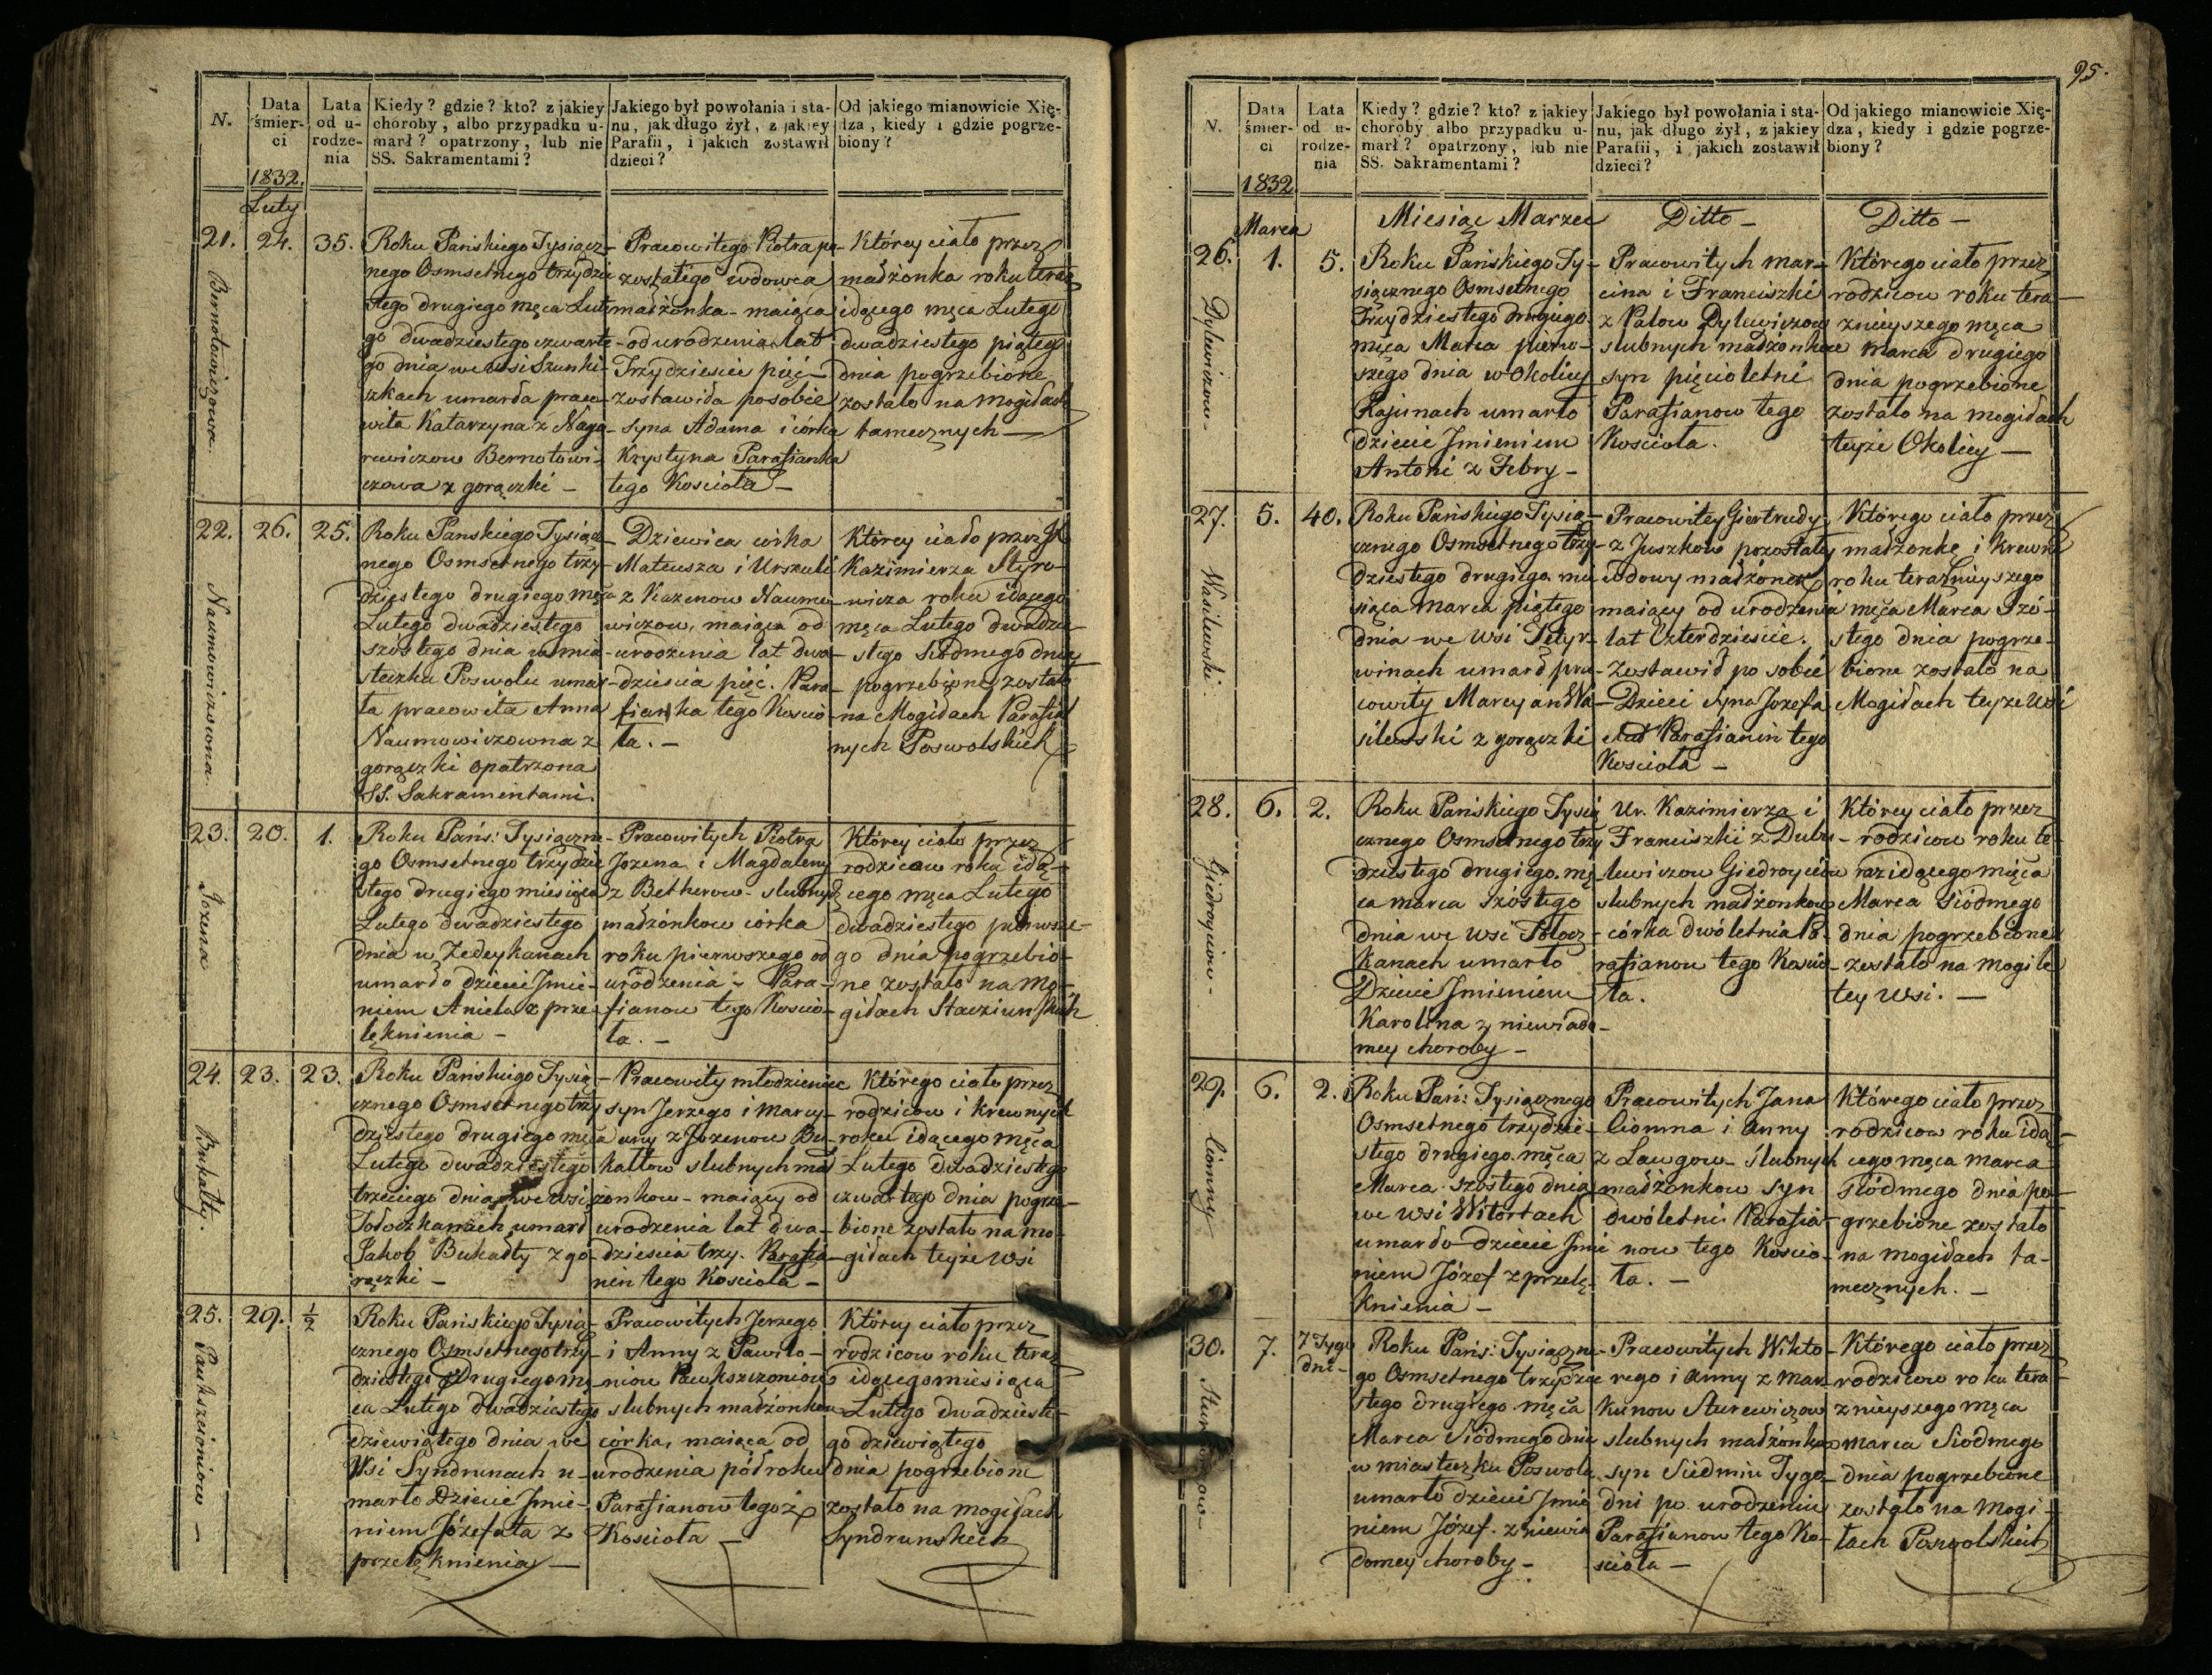 N.
Data śmier- ci
Lata od u- rodze- nia
Kiedy? gdzie? kto? z jakiey
choroby, albo przypadku u-
marł? opatrzony, lub nie
SS. Sakramentami?
Jakiego był powołania i sta-
nu, jak długo żył, z jakiey
Parafii, i jakich zostawił
dzieci?
Od jakiego mianowicie Xię-
dza, kiedy i gdzie pogrze-
biony?
1832.
Luty
21.
Bernotowiczowa.
24.
35.
Roku Pańskiego Tysiącz-
nego Osmsetnego trzydzie
stego drugiego męca Lute
go dwadziestego czwarte
go dnia we wsi Szunki-
szkach umarła praco-
wita Katarzyna z Naga-
rewiczow Bernotowi-
czowa z gorączki -
Pracowitego Piotra po-
zostałego wdowca
małżonka - maiąca
- od urodzenia lat
Trzydzieści pięć -
zostawiła po sobie
syna Adama i córka
Krystyna Parafianka
tego Kościoła -
Którey ciało przez
małżonka roku teraz
idącego męca Lutego
dwadziestego piątego
dnia pogrzebione
zostało na mogiłach
tamecznych -
22.
Naumowiczowna.
26.
25.
Roku Panskiego Tysiącz
nego Osmsetnego trzy-
dziestego drugiego męca
Lutego dwadziestego
szóstego dnia w mia-
steczku Poswolu umar-
ła pracowita Anna
Naumowiczowna z
gorączki opatrzona
SS. Sakramentami.
- Dziewica córka
Mateusza i Urszuli
z Kazenow Naumo-
wiczow, maiąca od
urodzenia lat dwa-
dzieścia pięć. Para-
fianka tego Kościo-
ła. -
Którey ciało przez JX
Kazimierza Styro-
wicza roku idącego
męca Lutego dwadzie-
stego siódmego dnia
pogrzebione zostało
na Mogiłach Parafial
nych Poswolskich
23.
Jozena
20.
1.
Roku Pańs: Tysiączne-
go Osmsetnego trzydzie
stego drugiego miesiąca
Lutego dwadziestego
dnia w Zedeykanach
umarło dziecie Jmie-
niem Aniela z prze-
lęknienia -
Pracowitych Piotra
Jozena i Magdaleny
z Betherow - slubnych
małżonkow córka
roku pierwszego od
urodzenia - Para-
fianow tego Kościo-
ła. -
Którey ciało przez
rodzicow roku idą-
cego męca Lutego
dwadziestego pierwsze-
go dnia pogrzebio-
ne zostało na mo-
giłach Stacziunskich
24.
Bukałty.
23.
23.
Roku Pańskiego Tysią-
cznego Osmsetnego trzy
dziestego drugiego męca
Lutego dwadziestego
trzeciego dnia we wsi
Tołoczkanach umarł
Jakob Bukałty z go-
rączki -
- Pracowity młodzieniec
syn Jerzego i Marcy-
anny z Jozenow Bu-
kałtow slubnych mał
żonkow - maiący od
urodzenia lat dwa-
dzieścia trzy. Parafia-
nin tego Kościoła -
Którego ciało przez
rodzicow i krewnych
roku idącego męca
Lutego dwadziestego
czwartego dnia pogrze-
bione zostało na mo-
giłach teyże wsi
25.
Paukszcioniow -
29.
1/2
Roku Pańskiego Tysią-
cznego Osmsetnego trzy-
dziestego Drugiego mę-
ca Lutego dwadziestego
dziewiątego dnia we
Wsi Syndrunach u-
marło Dziecie Jmie-
niem Józefata z
przelęknienia -
Pracowitych Jerzego
i Anny z Pawiło-
niow Paukszcioniow
slubnych małżonkow
córka, maiąca od
urodzenia pół roku
Parafianow tegoż
Kościoła -
Którey ciało przez
rodzicow roku teraz
idącego miesiąca
Lutego dwadzieste-
go dziewiątego
dnia pogrzebione
zostało na mogiłach
Syndrunskich
95.
N.
Data śmier- ci
Lata od u- rodze- nia
Kiedy? gdzie? kto? z jakiey
choroby albo przypadku u-
marł? opatrzony, lub nie
SS. Sakramentami?
Jakiego był powołania i sta-
nu, jak długo żył, z jakiey
Parafii, i jakich zostawił
dzieci?
Od jakiego mianowicie Xię-
dza, kiedy i gdzie pogrze-
biony?
1832
Marca
Miesiąc Marzec
Ditto -
Ditto -
26.
Dylewiczow -
1.
5.
Roku Pańskiego Ty-
siącznego Osmsetnego
Trzydziestego drugiego
męca Marca pierw-
szego dnia w Okolicy
Rajunach umarło
dziecie Jmieniem
Antoni z Febry -
Pracowitych Mar-
cina i Franciszki
z Patow Dylewiczow
slubnych małżonkow
syn pięcioletni
Parafianow tego
Kościoła.
Którego ciało przez
rodzicow roku tera-
znieyszego męca
Marca drugiego
dnia pogrzebione
zostało na mogiłach
teyże Okolicy -
27.
Wasilewski.
5.
40.
Roku Pańskiego Tysią-
cznego Osmsetnego trzy-
dziestego drugiego mie
siąca Marca piątego
dnia we wsi Tetyr-
winach umarł pra-
cowity Marcyan Wa-
silewski z gorączki
Pracowitey Giertrudy
z Juszkow pozostałey
wdowy małżonek
maiący od urodzenia
lat Czterdzieście.
Zostawił po sobie
Dzieci Syna Jozefa
Parafianin tego
Kościoła -
Którego ciało przez
małżonkę i krewn
roku teraźnieyszego
męca Marca Szó-
stego dnia pogrze-
bione zostało na
Mogiłach teyże Wsi
28.
Giedroyciow -
6.
2.
Roku Pańskiego Tysią
cznego Osmsetnego trzy
dziestego drugiego mę-
ca Marca szóstego
dnia we wsi Tołocz-
kanach umarło
Dziecie Jmieniem
Karolina z niewiado-
mey choroby -
Ur. Kazimierza i
Franciszki z Dubu-
lewiczow Giedroyciow
slubnych małżonkow
córka dwóletnia Pa-
rafianow tego Kościo-
ła.
Którey ciało przez
rodzicow roku te-
raz idącego mięca
Marca Siódmego
dnia pogrzebione
zostało na mogile
tey wsi. -
29.
Ciomny
6.
2.
Roku Pań: Tysiącznego
Osmsetnego trzydzie-
stego drugiego męca
Marca szóstego dnia
we wsi Witortach
umarło dziecie Jmie
niem Józef z przelę-
knienia -
Pracowitych Jana
Ciomna i Anny
z Lawgow - Slubnych
małżonkow syn
dwóletni Parafia-
now tego Kościo-
ła. -
Którego ciało przez
rodzicow roku idą-
cego męca Marca
siódmego dnia po-
grzebione zostało
na mogiłach ta-
mecznych. -
30.
7.
7 Tygo
dni -
Roku Pańs: Tysiączne-
go Osmsetnego trzydzie
stego drugiego męca
Marca Siódmego dnia
w miasteczku Poswolu
umarło dziecie Jmie
niem Józef. z niewia
domey choroby -
Pracowitych Wikto-
rego i Anny z Mar-
kunow Sturewiczow
slubnych małżonkow
syn Siedmiu Tygo-
dni po urodzeniu
Parafianow tego Ko-
ścioła -
Którego ciało przez
rodzicow roku tera-
znieyszego męca
Marca Siódmego
dnia pogrzebione
zostało na Mogi-
łach Poswolskich